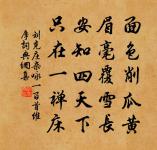 面色削瓜黄
眉毫覆雪長
安知四天下
只在一禪床
刘克庄杂咏一百首維
摩詞典網集